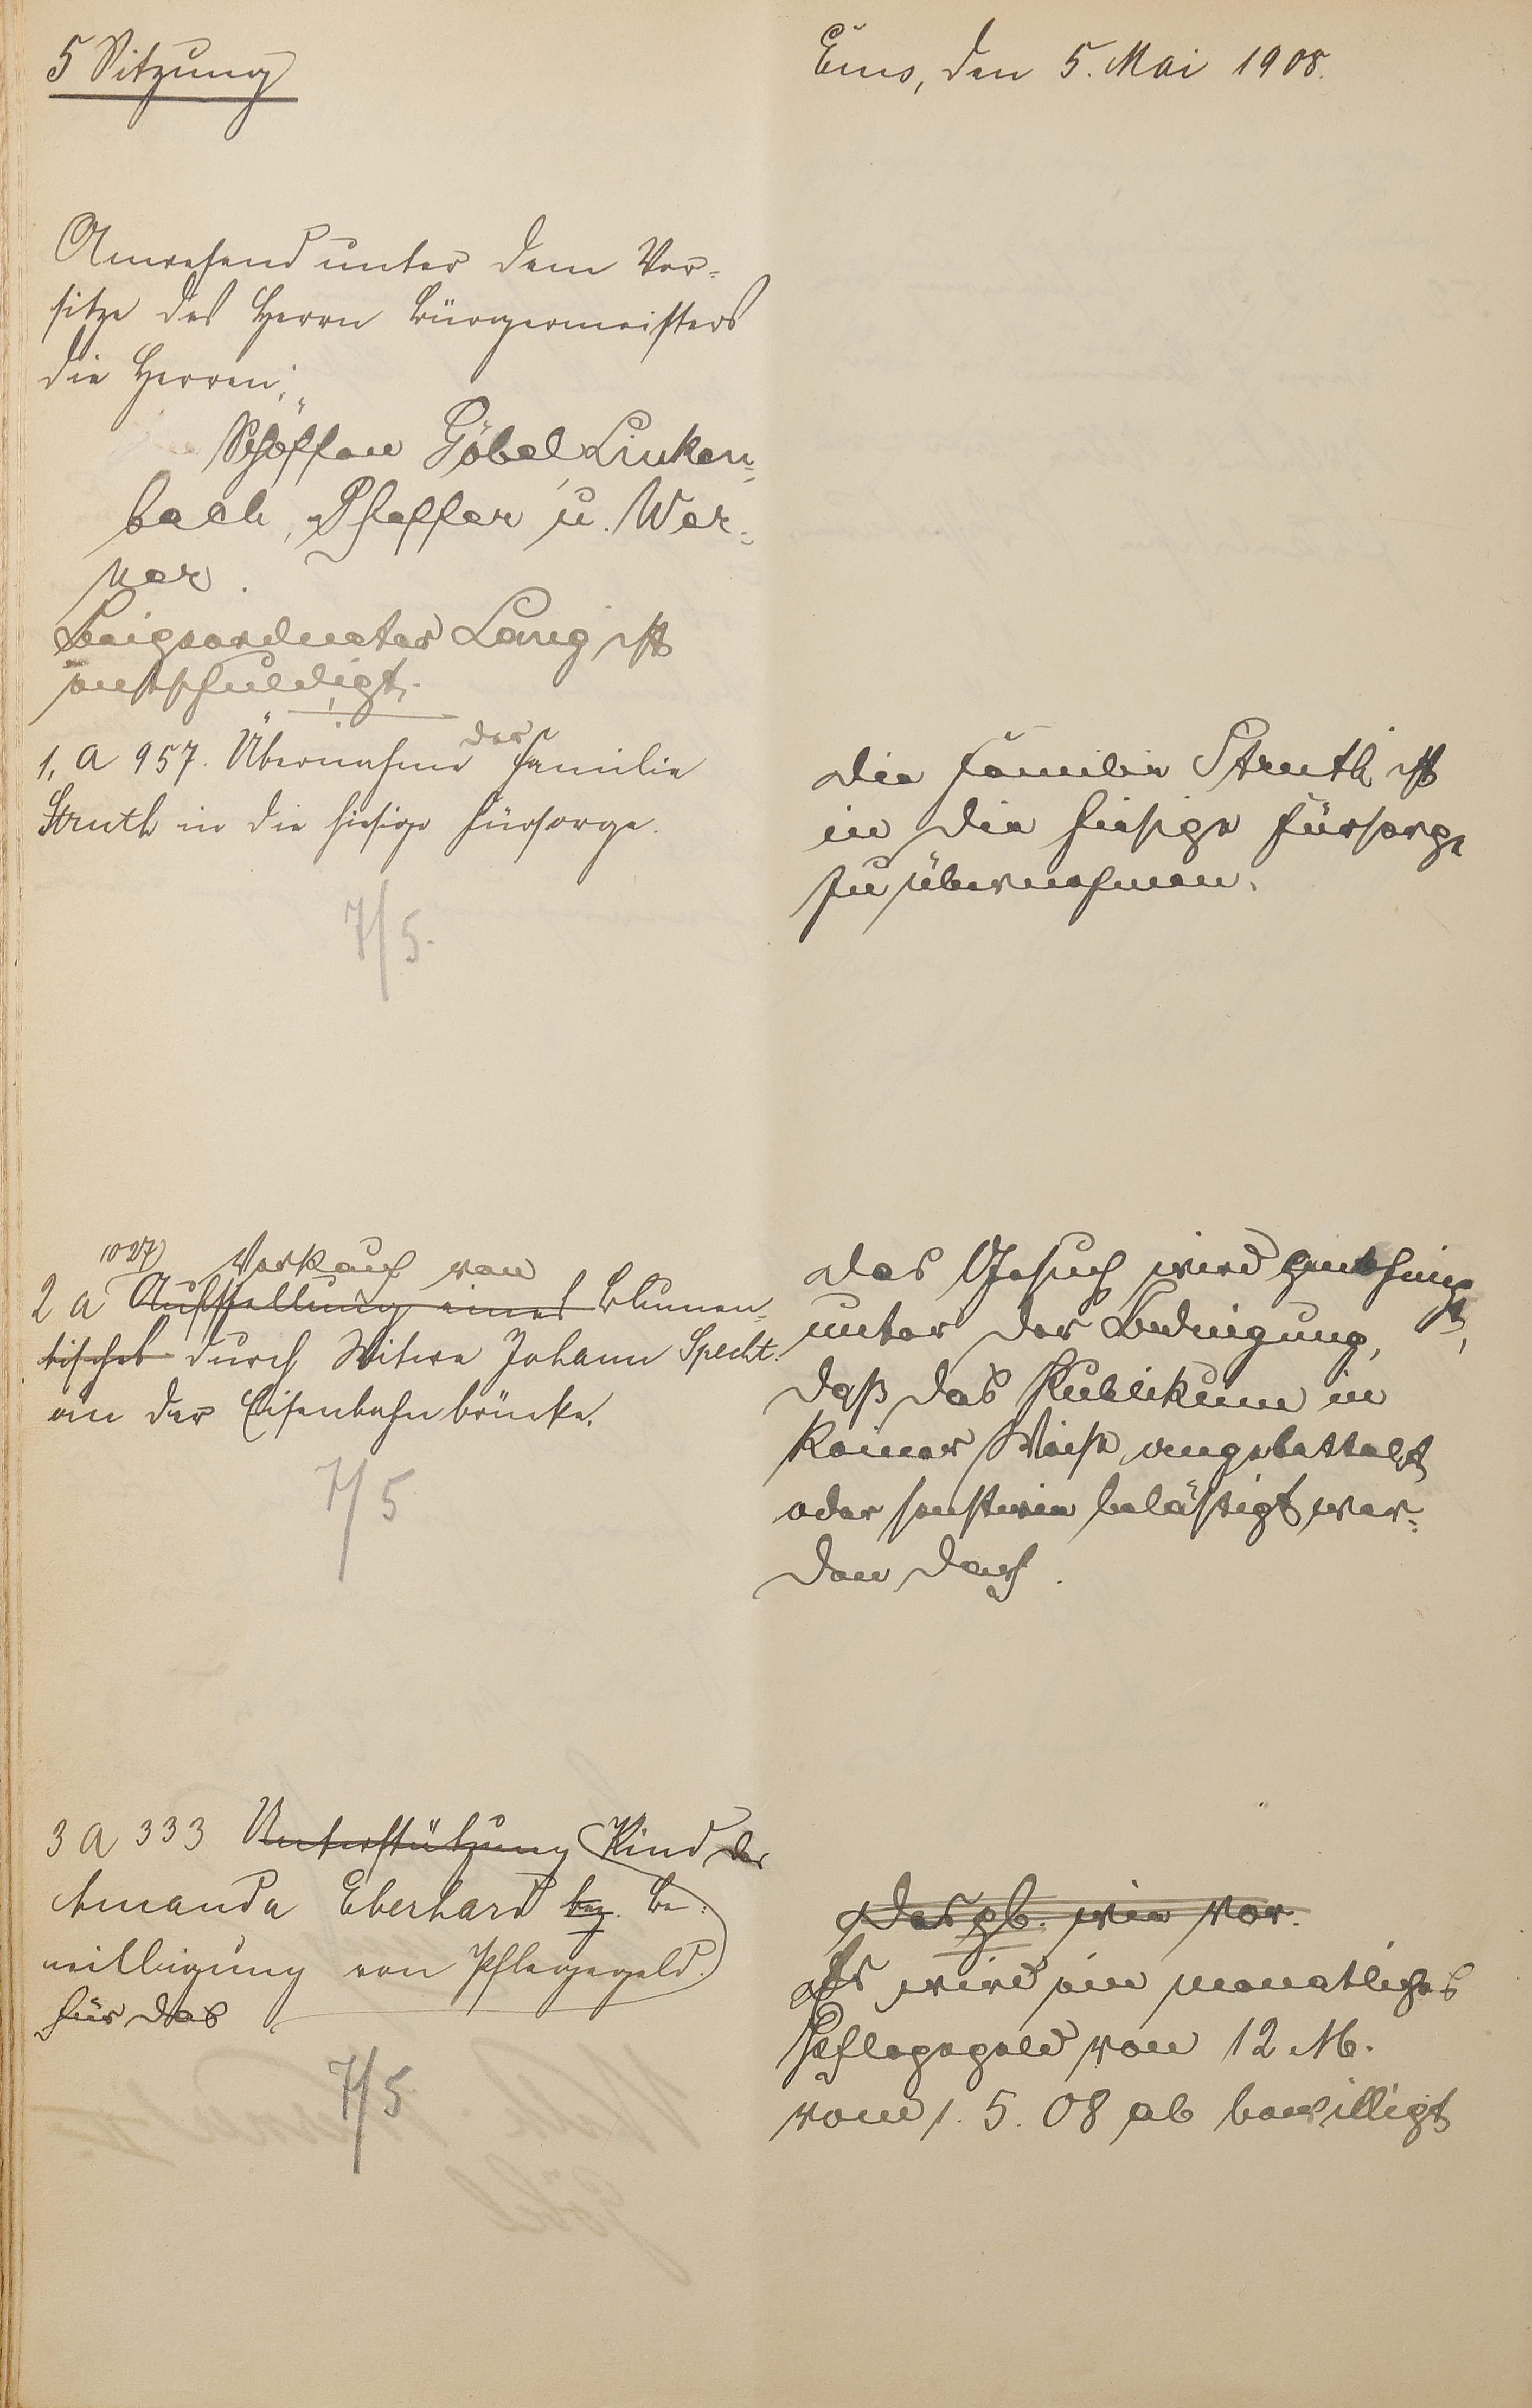 5 Sitzung
Ems, den 5. Mai 1908.
Anwesend unter dem Vor-
sitze des Herrn Bürgermeisters
die Herren:
Schöffen Göbel, Linken-
bach, Pfeffer u. Wer-
ner.
Beigeordneter Lang ist
entschuldigt.
1, A 957. Übernahme der Familie
Struth in die hiesige Fürsorge.
7/5.
Die Familie Struth ist
in die hiesige Fürsorge
zu übernehmen.
1027) Verkauf von
2 A Aufstellung eines Blumen-
tisches durch Witwe Johann Specht
an der Eisenbahnbrücke.
7/5
Das Gesuch wird genehmigt,
unter der Bedingung,
daß das Publikum in
keiner Weise angebettelt
oder sonstwie belästigt wer-
den darf.
3 A 333 Unterstützung Kind der
Amanda Eberhard bez. Be-
willigung von Pflegegeld.
für das
7/5
Desgl. wie vor.
Es wird ein monatliches
Pflegegeld von 12 M.
vom 1. 5. 08 ab bewilligt